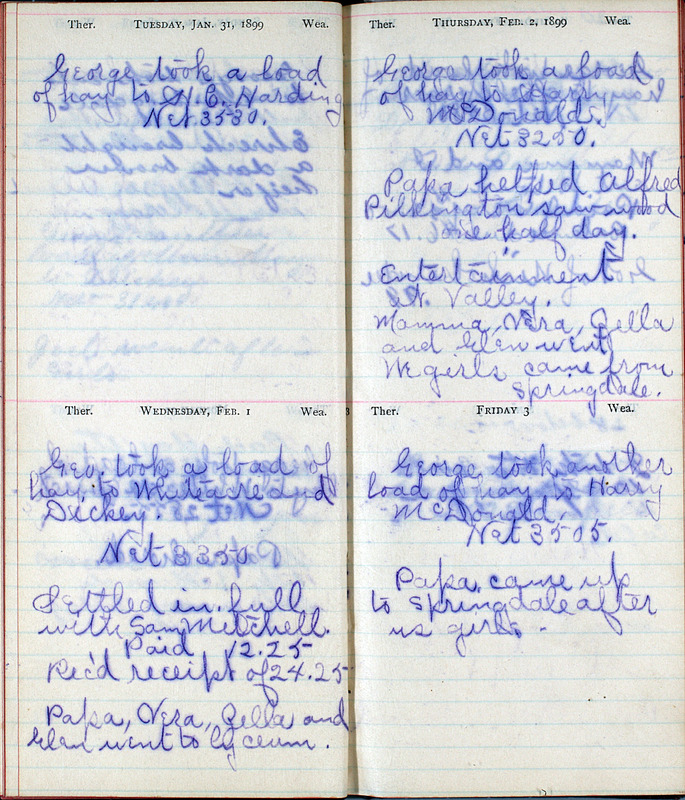 Ther. TUESDAY, JAN. 31, 1899 Wea.
George took a load
of hay to H. C. Harding
Net 3530.
WEDNESDAY, FEB. 1
Ther. Wea.
Geo. took a load of
hay to Whiteacre
Dickey.
Net 3350
Settled in full
with Sam Mitchell.
Paid 12.25
Rec'd receipt of 24.25
Papa, Vera, Zella and
Glen went to lyceum.
Ther. THURSDAY, FEB. 2, 1899 Wea.
George took a load
of hay to Harry
McDonald.
Net 3250.
Papa helped Alfred
Pilkington saw wood
one half day.
Entertainment
at Valley.
Mamma, Vera, Zella
and Glen went
We girls came from
Springdale.
Ther. FRIDAY 3 Wea.
George took another
load of hay to Harry
McDonald.
Net 3505.
Papa came up
to Springdale after
us girls.